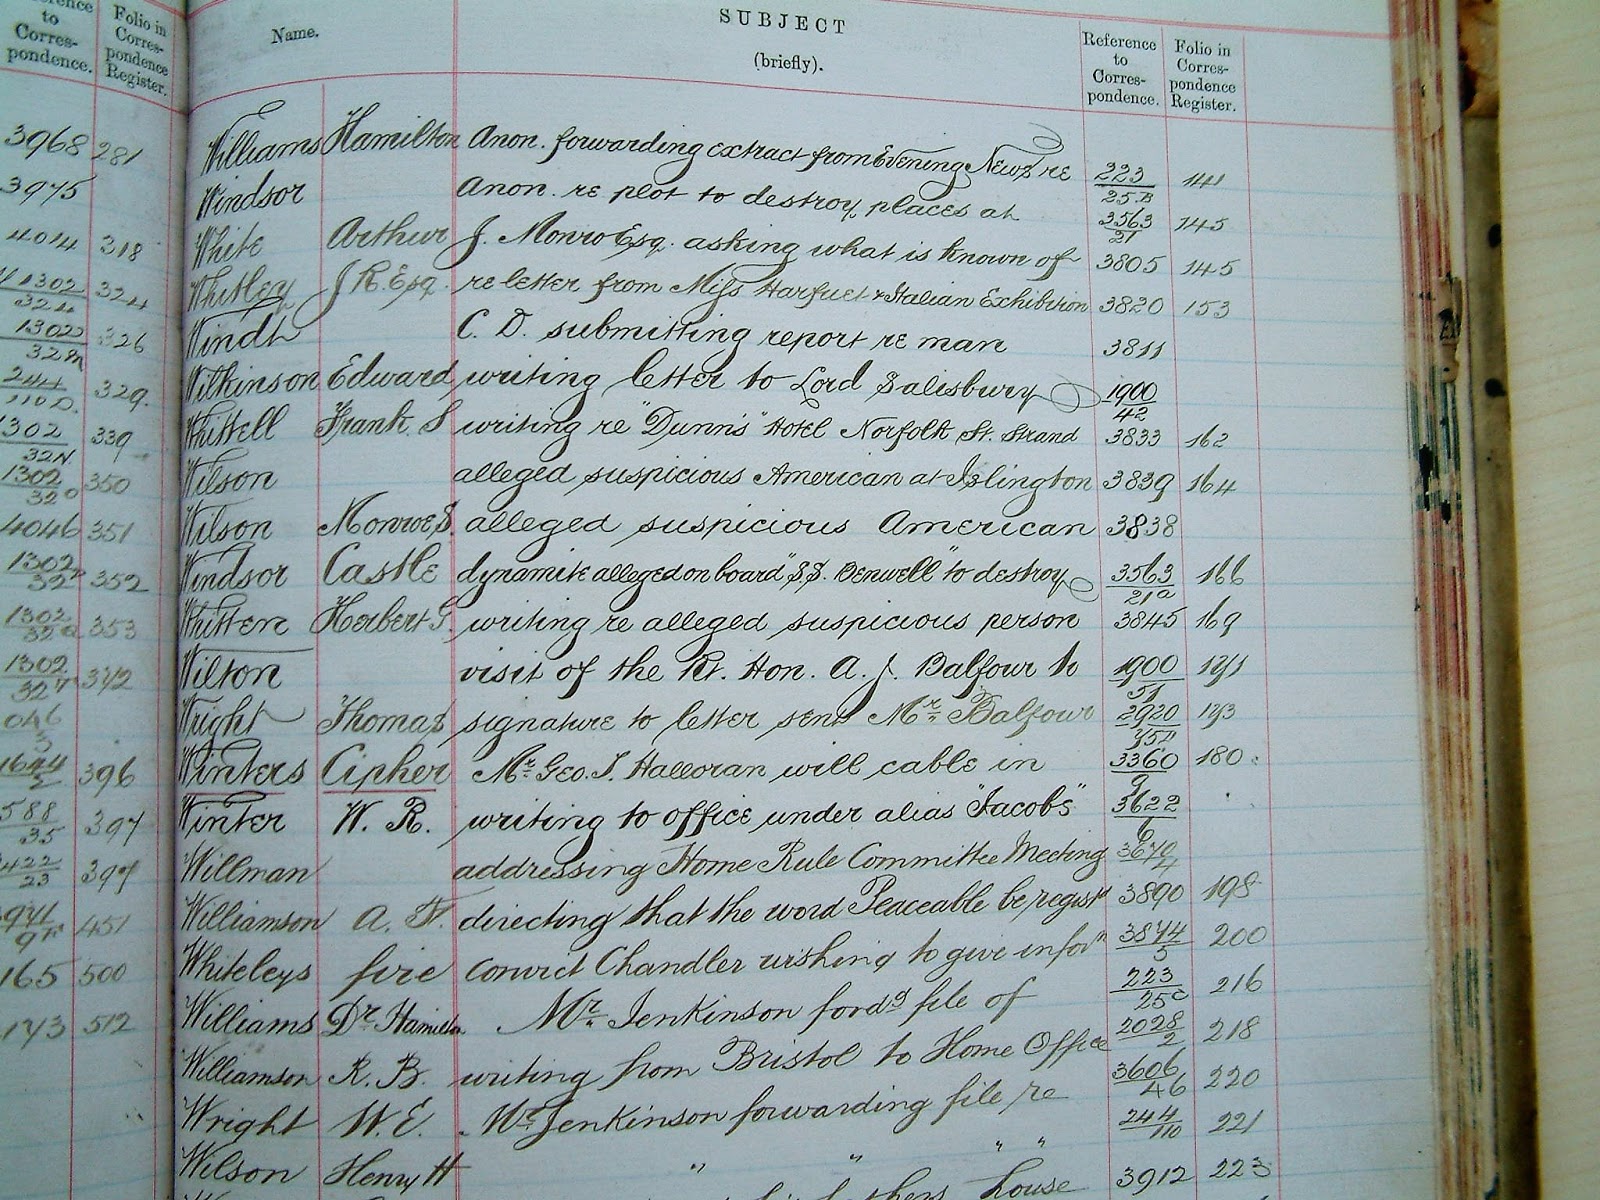 Reference
to
Corres-
pondence.
Folio in
Corres-
pondence
Register.
3968 281
3975
4014 318
1302/324 324
1302 326
329.
1302/32N. 339
1302/32o 350
4046 351
1302/32 352
1302 353
1302/32 372
046/5
1644/2 396
588/35 397
422/23 397
941 451
165 500
173 512
Name.
SUBJECT
(briefly).
Reference
to
Corres-
pondence.
Folio in
Corres-
pondence
Register.
Williams Hamilton Anon. forwarding extract from Evening News re 223/25.B 141
Windsor Anon. re plot to destroy places at 3563/21 145
White Arthur J. Monro Esq. asking what is known of 3805 145
Whitley J R Esq. re letter from Miss & Italian Exhibition 3820 153
Windt C. D. submitting report re man 3811
Wilkinson Edward, writing letter to Lord Salisbury 1900/42
Whittell Frank. S writing re "Dunn's" Hotel Norfolk St. Strand 3833 162
Wilson alleged suspicious American at Islington 3839 164
Wilson Monroe S. alleged suspicious American 3838
Windsor Castle dynamite alleged on board "S.S. Benwell" to destroy 3563/21a 166
Whitten Herbert G. writing re alleged suspicious person 3845 169
Wilton visit of the Rt. Hon. A. J. Balfour to 1900/51 171
Wright Thomas signature to letter sent Mr. Balfour 2920 173
Winters Cipher Mr. Geo. J. Halloran will cable in 3360/9 180.
Winter W. R. writing to office under alias "Jacobs" 3622/6
Willman addressing Home Rule Committee Meeting 3670/4
Williamson A. F. directing that the word Peaceable be regist'd 3890 198
Whiteleys fire Convict Chandler wishing to give infor'n 3874/5 200
Williams Dr. Hamilton Mr. Jenkinson ford'g file of 223/25c 216
Williamson R. B. writing from Bristol to Home Office 2028/2 218
Wright W. E. Mr. Jenkinson forwarding file re 3606/46 220
244/110 221
Wilson Henry H " " " " 3912 223
house